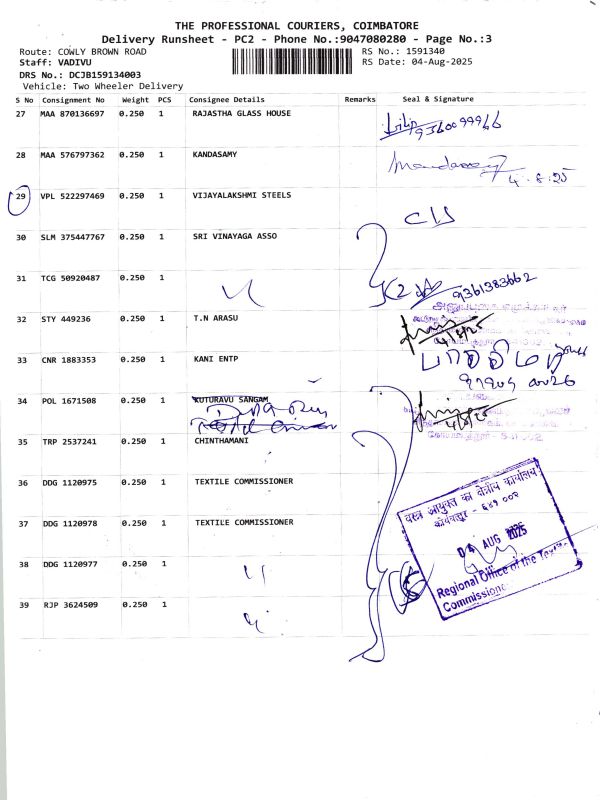 THE PROFESSIONAL COURIERS, COIMBATORE
Delivery Runsheet - PC2 - Phone No.:9047080280 - Page No.:3
Route: COWLY BROWN ROAD
RS No.: 1591340
Staff: VADIVU
RS Date: 04-Aug-2025
DRS No.: DCJB159134003
Vehicle: Two Wheeler Delivery
S No Consignment No Weight PCS Consignee Details Remarks Seal & Signature
27 MAA 870136697 0.250 1 RAJASTHA GLASS HOUSE
9360099966
28 MAA 576797362 0.250 1 KANDASAMY
4-8-25
29 VPL 522297469 0.250 1 VIJAYALAKSHMI STEELS
C/S
30 SLM 375447767 0.250 1 SRI VINAYAGA ASSO
31 TCG 50920487 0.250 1
9361383662
32 STY 449236 0.250 1 T.N ARASU
4/8/25
33 CNR 1883353 0.250 1 KANI ENTP
34 POL 1671508 0.250 1 KUTURAVU SANGAM
4/8/25
35 TRP 2537241 0.250 1 CHINTHAMANI
36 DDG 1120975 0.250 1 TEXTILE COMMISSIONER
वस्त्र आयुक्त का क्षेत्रीय कार्यालय
कोयंबत्तूर - ६४१ ००२
37 DDG 1120978 0.250 1 TEXTILE COMMISSIONER
04 AUG 2025
38 DDG 1120977 0.250 1
Regional Office of the Textile
Commissioner
39 RJP 3624509 0.250 1